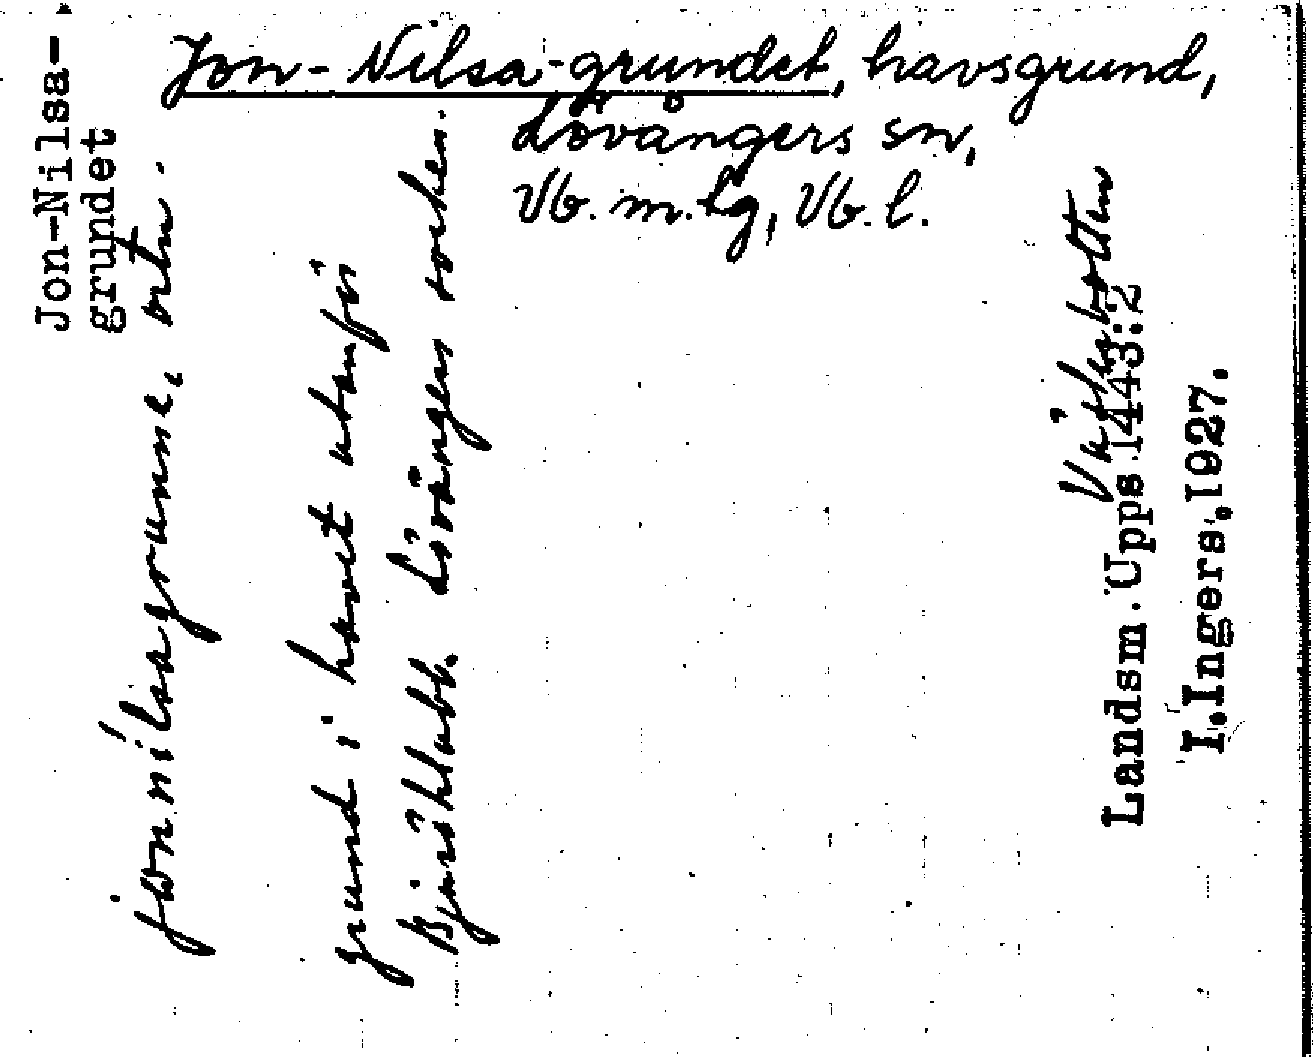 Jon-Nilsa-grundet, havsgrund,
Lövångers sn,
Vb. m. lg, Vb. l.
Jon-Nilsa-
grundet
jonnilsagrunne, ortn.
grund i havet utanför
Bjuröklubb. Lövånger socken.
Västerbotten
Landsm. Upps. 1443:2
I. Ingers, 1927.